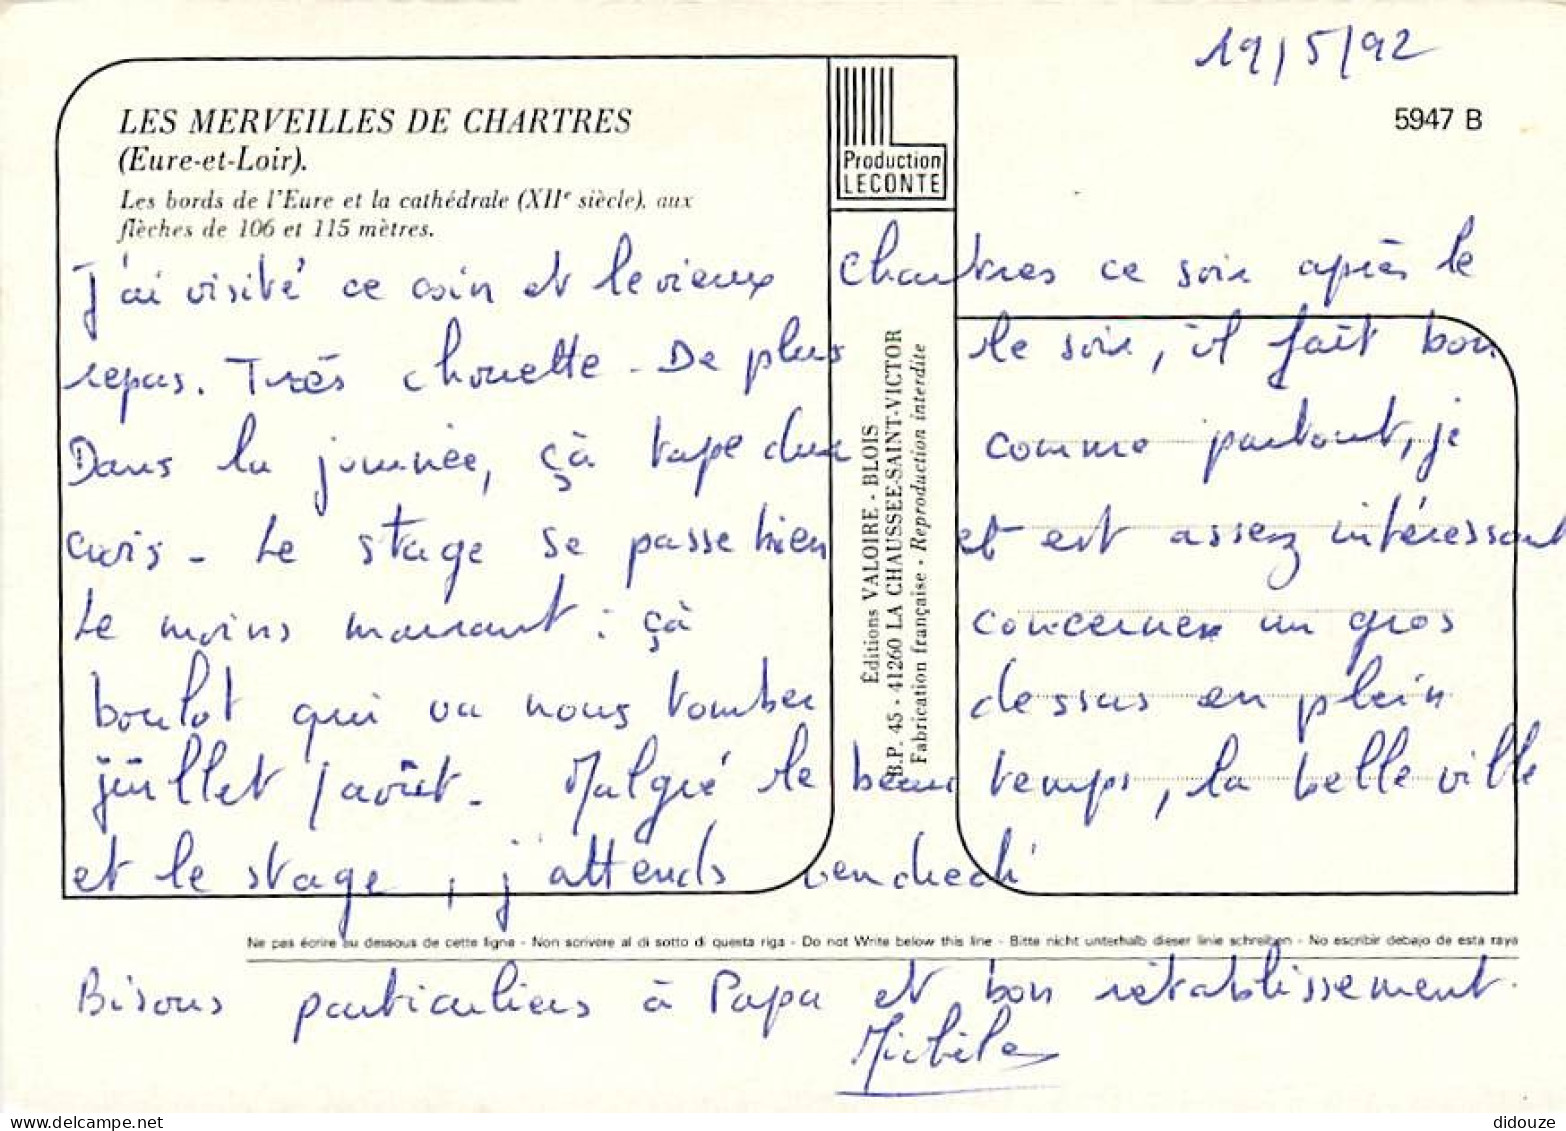 19/5/92
LES MERVEILLES DE CHARTRES
(Eure-et-Loir).
Les bords de l'Eure et la cathédrale (XIIe siècle), aux
flèches de 106 et 115 mètres.
5947 B
Production
LECONTE
J'ai visité ce coin et le vieux Chartres ce soir après le
repas. Très chouette. De plus le soir, il fait bon
Dans la journée, çà tape dur comme partout, je
crois. Le stage se passe bien et est assez intéressant
Le moins marrant : çà concerner un gros
boulot qui va nous tomber dessus en plein
juillet / août. Malgré le beau temps, la belle ville
et le stage, j'attends vendredi
Éditions VALOIRE - BLOIS
B.P. 45 - 41260 LA CHAUSSEE-SAINT-VICTOR
Fabrication française - Reproduction interdite
Ne pas écrire au dessous de cette ligne - Non scrivere al di sotto di questa riga - Do not Write below this line - Bitte nicht unterhalb dieser linie schreiben - No escribir debajo de esta raya
Bisous particuliers à Papa et bon rétablissement.
Michèle
didouze